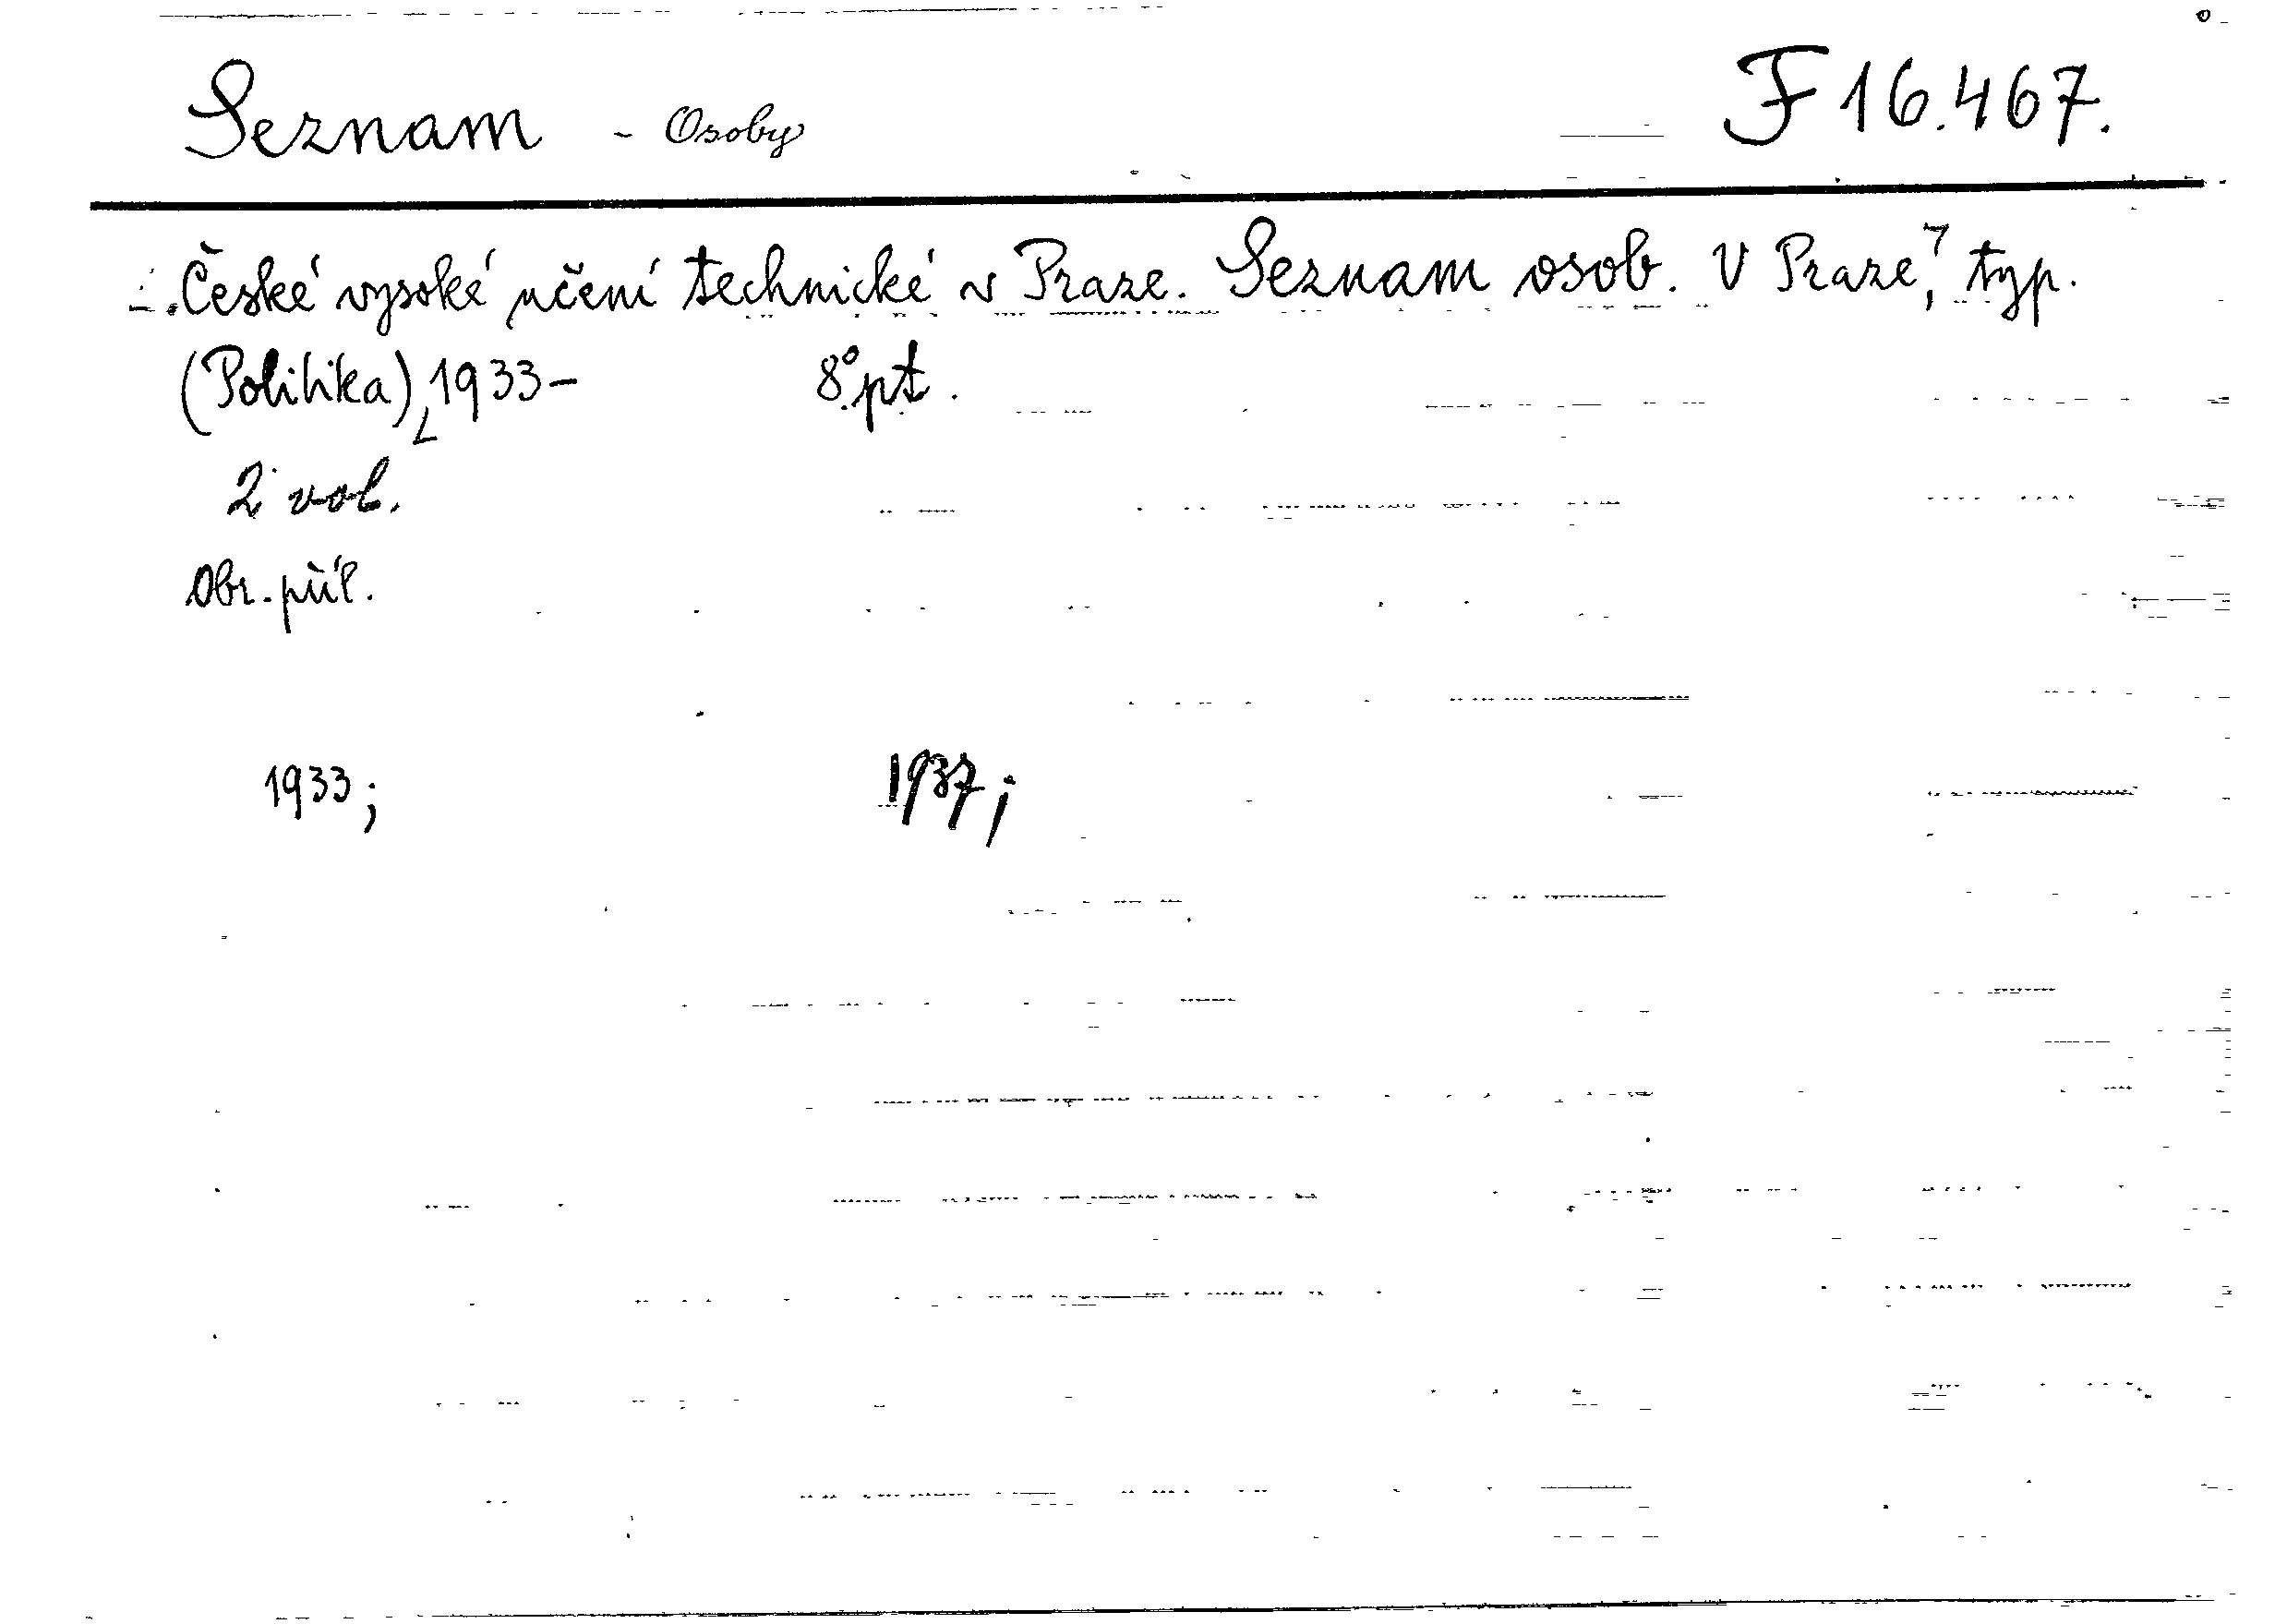 Seznam - Osoby F 16.467.
České vysoké učení technické v Praze. Seznam osob. V Praze, ꓶ typ.
(Politika), 1933- 8° pt.
2 vol.
Obr. příl.
1933; 1937;